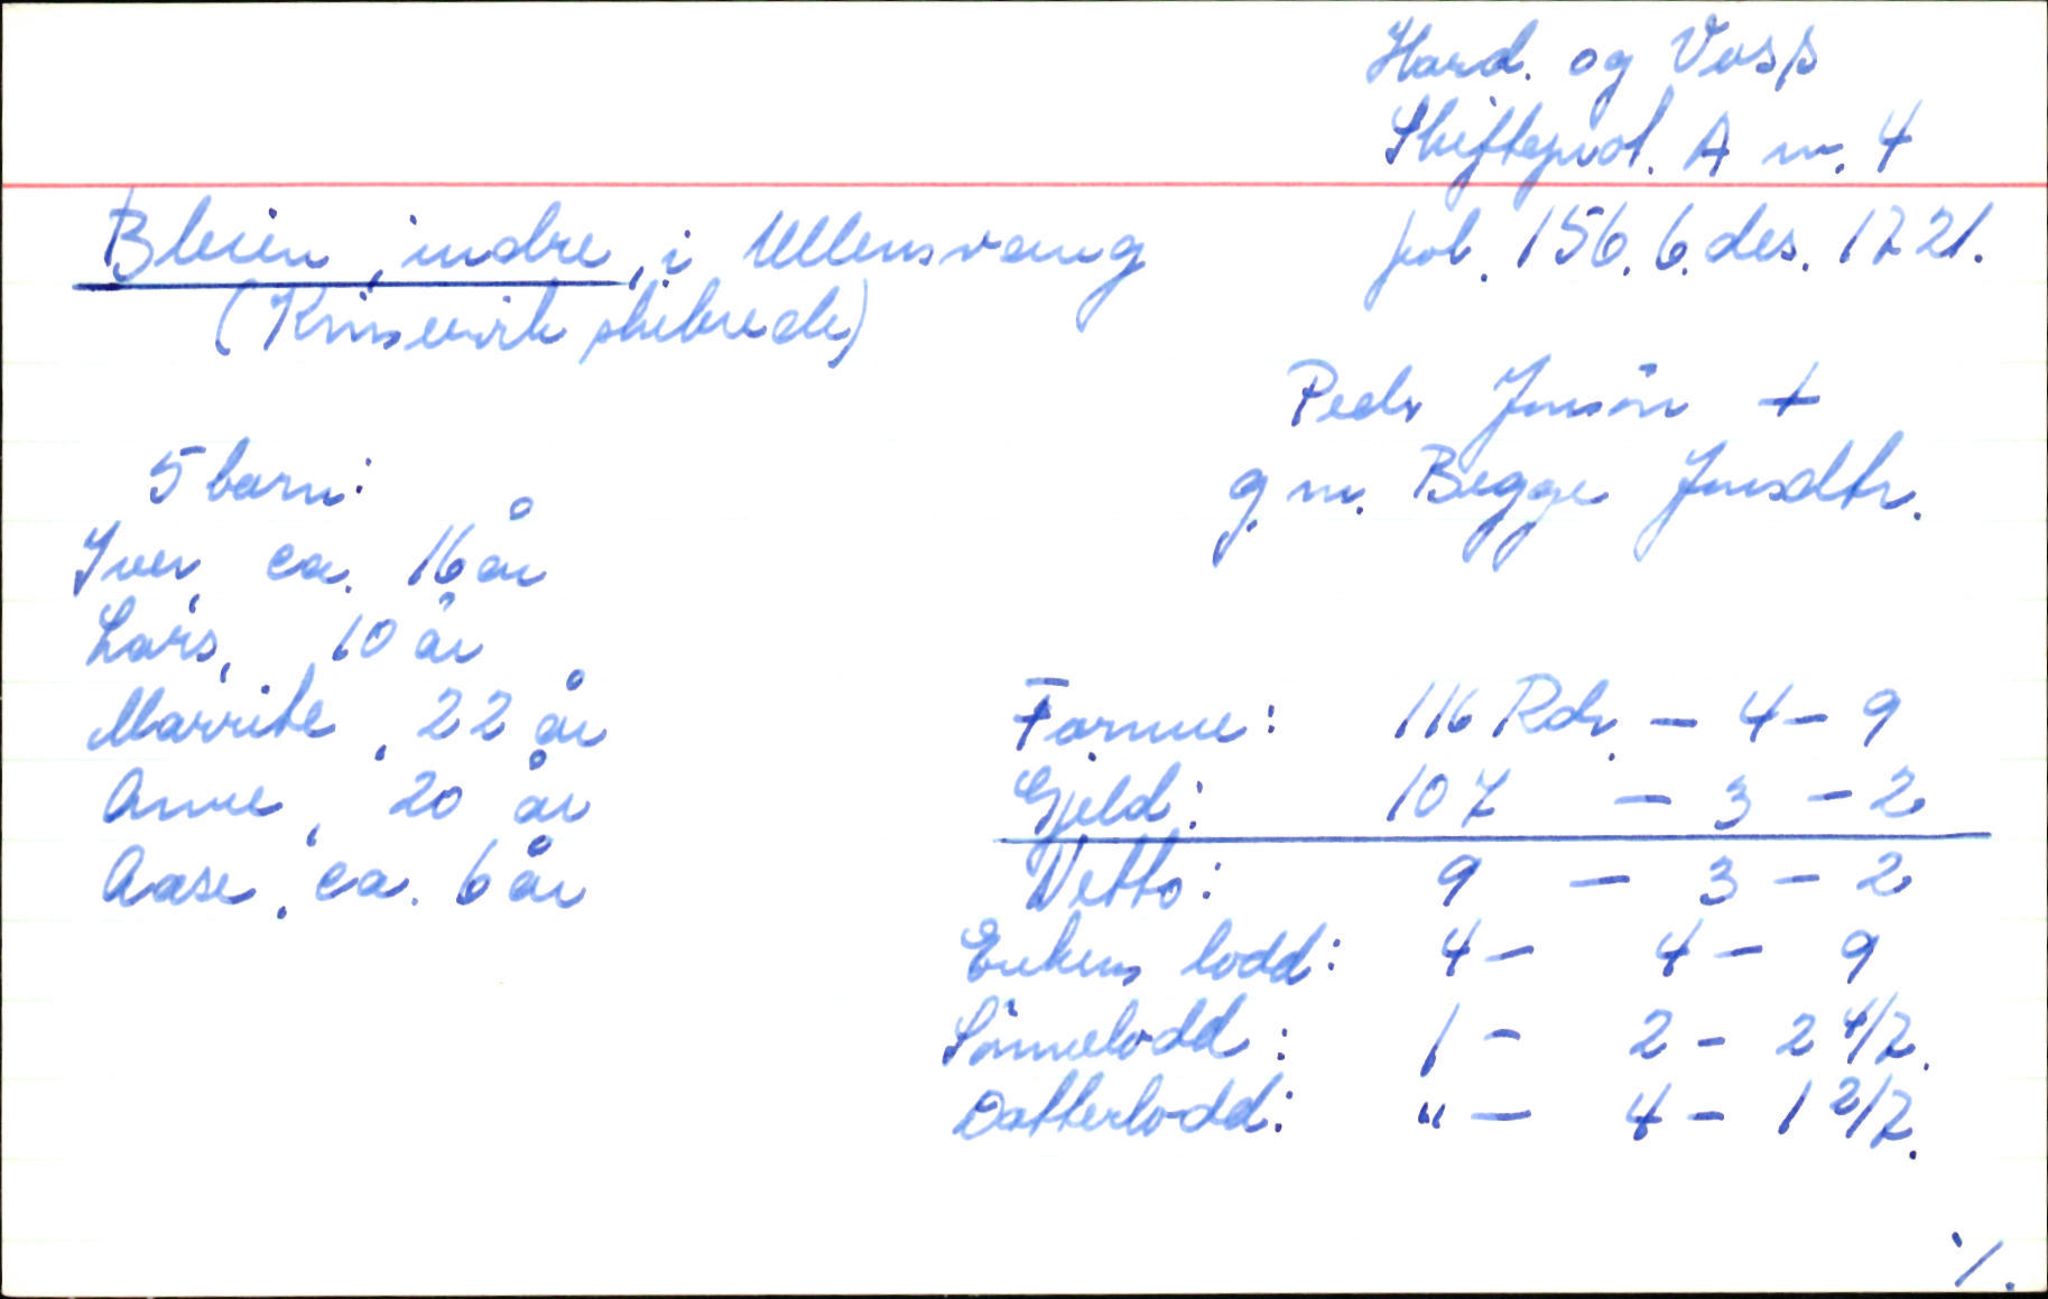 Hard. og Voss
Skifteprot. A nr. 4
fol. 156. 6. des. 1721.
Bleien, indre, i Ullensvang
(Kinservik skibrede)
Peder Jonsön +
g. m. Begge Jonsdtr.
5 barn:
Iver, ca. 16 år
Lars, 10 år
Marrite, 22 år
Anne, 20 år
Aase, ca. 6 år
Formue: 116 Rdr. - 4 - 9
Gjeld: 107 - 3 - 2
Netto: 9 - 3 - 2
Enkens lodd: 4 - 4 - 9
Sönnelodd: 1 - 2 - 2 4/7.
Datterlodd: " - 4 - 1 2/7.
·/.